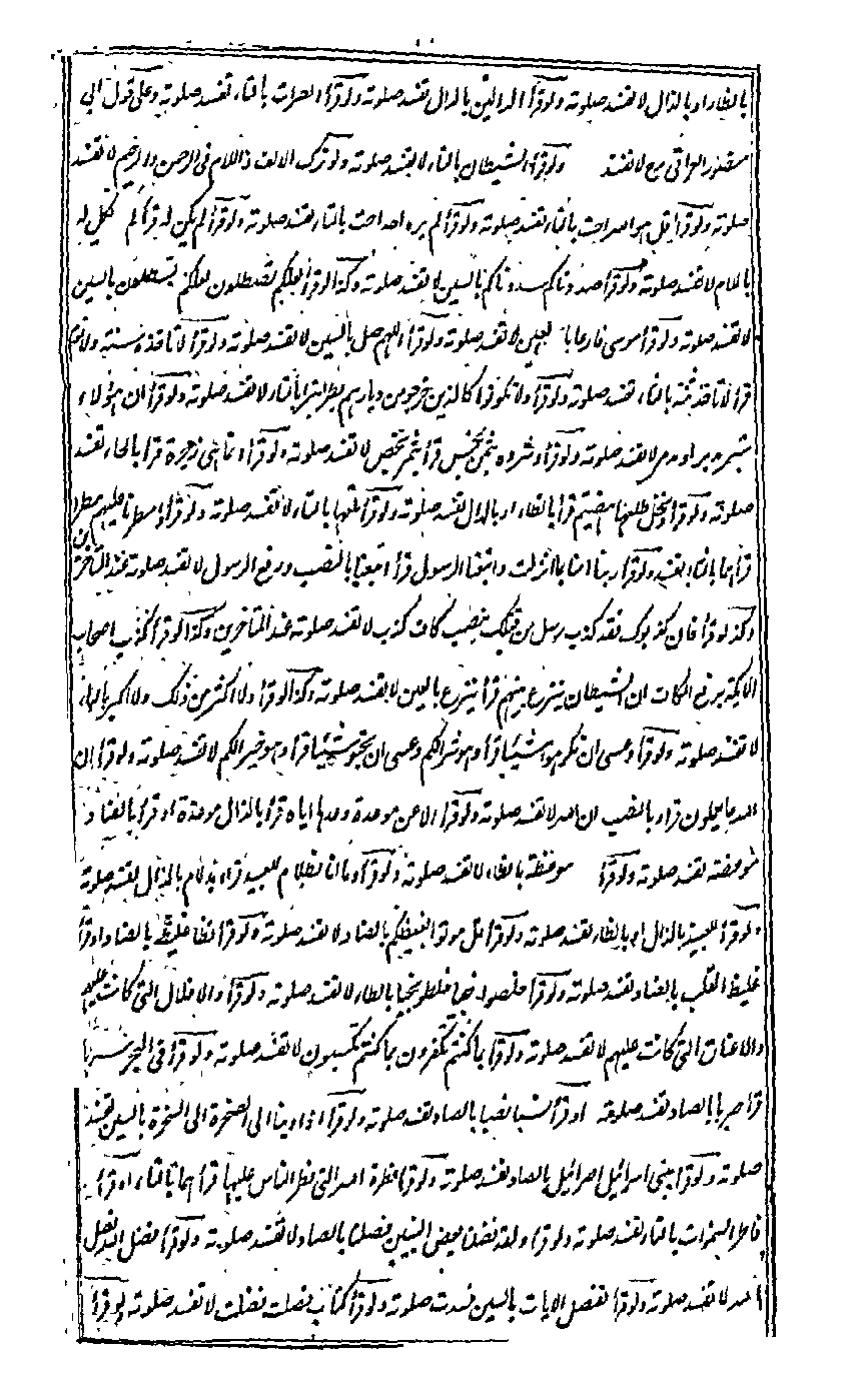 بالظاء او بالذال لا تفسد صلوته ولو قرأ الدالين بالدال تفسد صلوته ولو قرأ الصراط بالتاء تفسد صلوته وعلى قول ابى
منصور العراقى مع لا تفسد ولو قرأ الشيطان بالتاء لا تفسد صلوته ولو ترك الالف واللام فى الرحمن والرحيم لا تفسد
صلوته ولو قرأ قل هو الله احت بالتاء تفسد صلوته ولو قرأ لم يره احد احت بالتاء تفسد صلوته ولو قرأ لم يكن له قرأ لم كل له
باللام لا تفسد صلوته ولو قرأ صددناكم سددناكم بالسين لا تفسد صلوته وكذا لو قرأ لعلكم تصطلون لعلكم تسطلون بالسين
لا تفسد صلوته ولو قرأ موسى فارغا با لعين لا تفسد صلوته ولو قرأ اللهم صل بالسين لا تفسد صلوته ولو قرأ لا تاخذه سنة ولا نوم
قرأ لا تاخذ ثنة بالثاء تفسد صلوته ولو قرأ ولا تكونوا كالذين خرجوا من ديارهم بطرا بترا بالتاء لا تفسد صلوته ولو قرأ ان هؤلاء
لا تفسد صلوته ولو قرأ وشروه بثمن بخس قرأ بثمن بخص لا تفسد صلوته ولو قرأ وانما هى زجرة قرأ بالحاء تفسد
صلوته ولو قرأ ونخل طلعها هضيم قرأ بالظاء او بالذال تفسد صلوته ولو قرأ بالتاء لا تفسد صلوته ولو قرأ وامطرنا عليهم مطرا
قرأهما بالتاء تفسد ولو قرأ ربنا امنا بما انزلت واتبعنا الرسول قرأ اتبعنا بالنصب ورفع الرسول لا تفسد صلوته عند المتأخرين
وكذا لو قرأ فان كذبوك فقد كذب رسل من قبلك بنصب كاف كذب لا تفسد صلوته عند المتأخرين وكذا لو قرأ كذب اصحاب
الايكة برفع الكاف ان الشيطان ينزغ بينهم قرأ ينزع بالعين لا تفسد صلوته وكذا لو قرأ ولا اكثر من ذلك ولا اكبر بالباء
لا تفسد صلوته ولو قرأ وعسى ان تكرهوا شيئا قرأ وهو شر لكم وعسى ان تحبوا شيئا قرأ وهو خير لكم لا تفسد صلوته ولو قرأ ان
الله بما يعملون قرأه بالنصب ان الله لا تفسد صلوته ولو قرأ الا عن موعدة وعدها اياه قرأ بالذال موعذة او قرأ بالضاد
موعضة تفسد صلوته ولو قرأ موعظة بالظاء لا تفسد صلوته ولو قرأ وما انا بظلام للعبيد قرأه بذلام بالذال تفسد صلوته
ولو قرأ للعبيد بالذال او بالظاء تفسد صلوته ولو قرأ قل موتوا بغيظكم بالضاد لا تفسد صلوته ولو قرأ فظا غليظ بالضاد او قرأ
غليظ القلب بالضاد تفسد صلوته ولو قرأ خلصوا نجيا خلطوا نجيا بالطاء لا تفسد صلوته ولو قرأ والاغلال التى كانت عليهم
والاعناق التى كانت عليهم لا تفسد صلوته ولو قرأ بما كنتم تكفرون بما كنتم تكسبون لا تفسد صلوته ولو قرأ فى البحر سربا
قرأ صربا بالصاد تفسد صلوته او قرأ نسبا نصبا بالصاد تفسد صلوته ولو قرأ اذ اوينا الى الصخرة الى السخرة بالسين تفسد
صلوته ولو قرأ بنى اسرائيل اصرائيل بالصاد تفسد صلوته ولو قرأ فطرة الله التى فطر الناس عليها قرأهما بالتاء او قرأ
فاطر السموات بالتاء تفسد صلوته ولو قرأ ولقد فضلنا بعض النبيين فصلنا بالصاد لا تفسد صلوته ولو قرأ لفضل الله فصل
الله لا تفسد صلوته ولو قرأ نفصل الايات بالسين فسدت صلوته ولو قرأ كتاب فصلت فضلت لا تفسد صلوته ولو قرأ